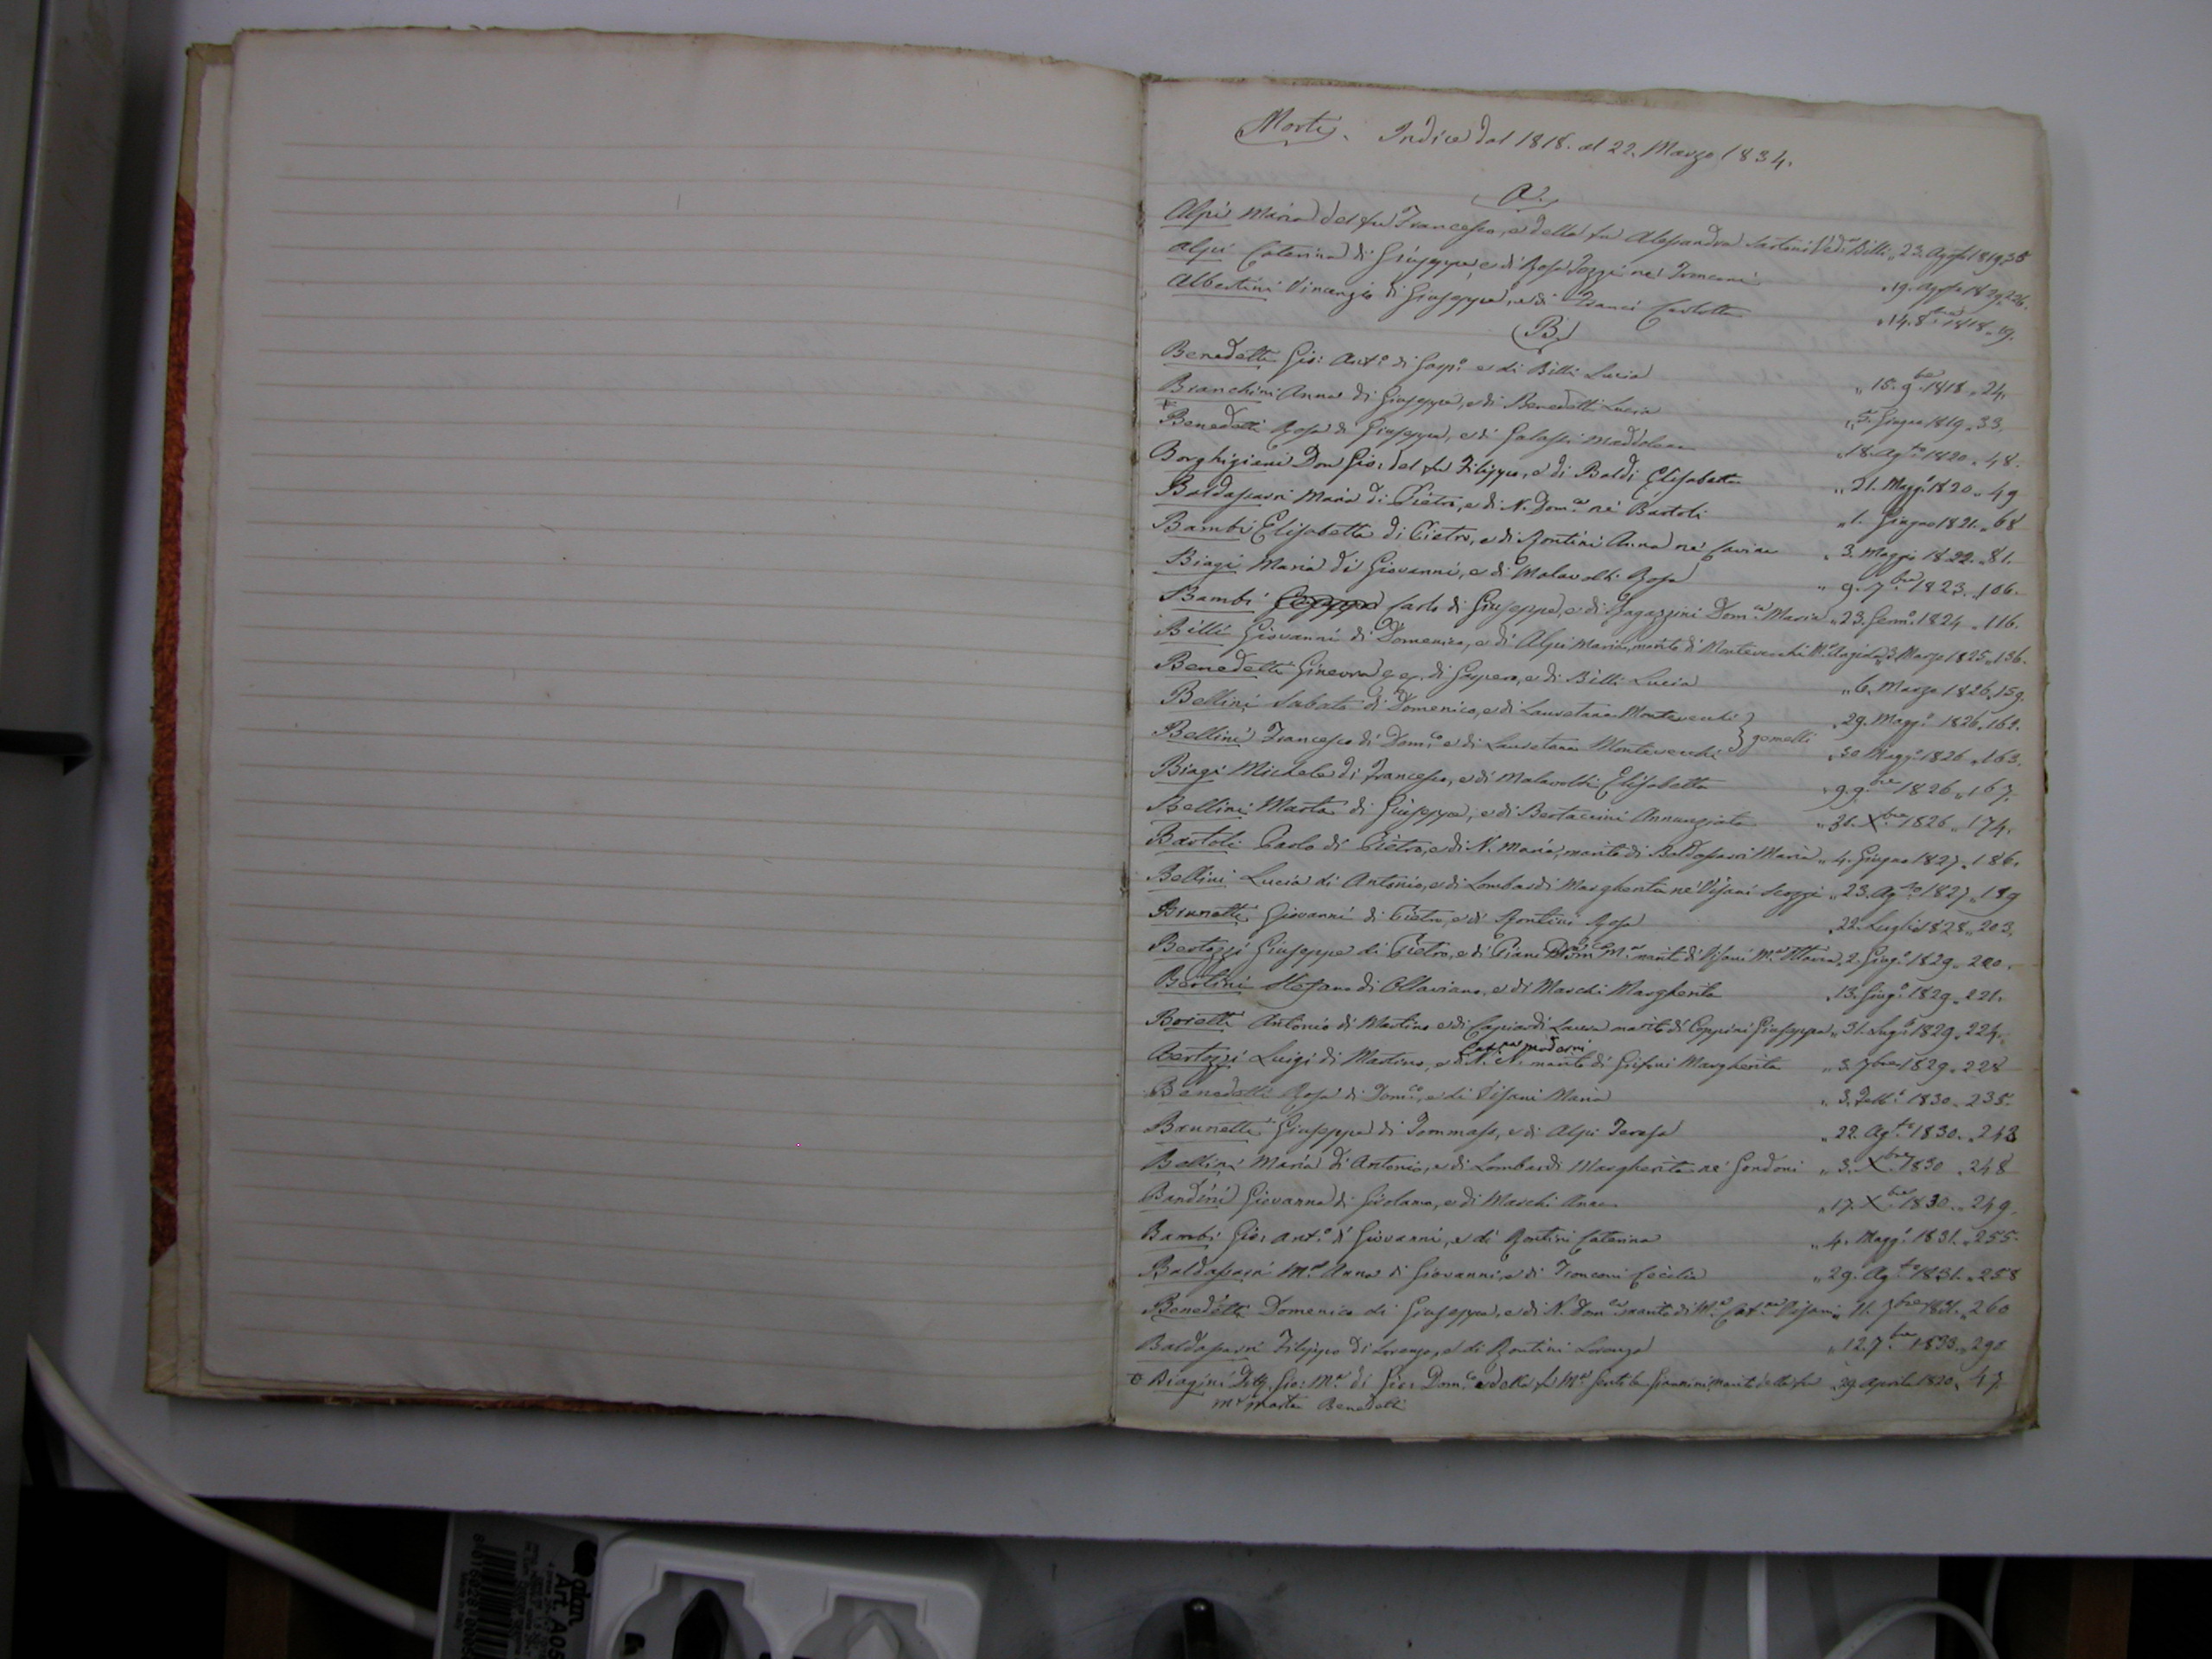 Morti. Indice dal 1818. al 22. Marzo 1834.
A.
Alpi Maria del fu Francesco, e della fu Alessandra Sartoni Ved.a Billi „ 23. Agosto 1819. 35
Alpi Caterina di Giuseppe, e di Rosa Pozzi ne' Tronconi „ 19. Agosto 1829. 226.
Albertini Vincenzio di Giuseppe, e di Franci Carlotta „ 14. 8bre 1818. „ 19.
B.
Benedetti Gio: Ant.o di Gasp.o e di Billi Lucia „ 15. 9bre 1818. „ 24.
Bianchini Anna di Giuseppe, e di Benedetti Lucia „ 5. Giugno 1819. „ 33.
Benedetti Rosa di Giuseppe, e di Galassi Maddalena „ 18. Ag.to 1820. „ 48.
Borghigiani Don Gio: del fu Filippo, e di Baldi Elisabetta „ 21. Magg.o 1820. „ 49
Baldassari Maria di Pietro, e di N. Dom.ca ne' Bartoli „ 1. Giugno 1821. „ 68
Bambi Elisabetta di Pietro, e di Rontini Anna ne' Savini „ 3. Maggio 1822. „ 81.
Biagi Maria di Giovanni, e di Malavolti Rosa „ 9. 7bre 1823. „ 106.
Bambi Carlo di Giuseppe, e di Ragazzini Dom.ca Maria „ 23. Genn.o 1824. „ 116.
Billi Giovanni di Domenico, e di Alpi Maria, marito di Montevecchi M.a Angiola „ 3. Marzo 1825. „ 136.
Benedetti Ginevra di Gaspero, e di Billi Lucia „ 6. Marzo 1826. 159.
Bellini Sabato di Domenico, e di Lauretana Montevecchi „ 29. Magg.o 1826. „ 162.
} gemelli
Bellini Francesco di Dom.co e di Lauretana Montevecchi „ 30 Magg.o 1826. „ 163.
Biagi Michele di Francesco, e di Malavolti Elisabetta „ 9. 9bre 1826. „ 167.
Bellini Marta di Giuseppe, e di Bertaccini Annunziata „ 31. Xbre 1826. „ 174.
Bartoli Paolo di Pietro, e di N. Maria, marito di Baldassari Maria „ 4. Giugno 1827. „ 186.
Bellini Lucia di Antonio, e di Lombardi Margherita ne' Visani Scozzi „ 23. Ag.to 1827. „ 189
Brunetti Giovanni di Pietro, e di Rontini Rosa „ 22. Luglio 1828. „ 203.
Bertozzi Giuseppe di Pietro, e di Piani Dom.ca M.a marito di Visani M.a Vittoria „ 2. Giug.o 1829. „ 220.
Bertini Stefano di Ottaviano, e di Maschi Margherita „ 13. Giug.o 1829. „ 221.
Boretti Antonio di Martino e di Capiardi Laura marito di Poppini Giuseppa „ 31. Lug.o 1829. „ 224.
Cat.na Moderni
Bertozzi Luigi di Martino, e di N. N. marito di Grifoni Margherita „ 3. 7bre 1829. „ 228
Benedetti Rosa di Dom.co, e di Visani Maria „ 3. Febb.o 1830. „ 235.
Brunetti Giuseppe di Tommaso, e di Alpi Teresa „ 22. Ag.to 1830. „ 243
Bellini Maria di Antonio, e di Lombardi Margherita ne' Gondoni „ 3. Xbre 1830 „ 248
Bandini Giovanna di Girolamo, e di Maschi Anna „ 17. Xbre 1830. „ 249.
Bambi Gio: Ant.o di Giovanni, e di Rontini Caterina „ 4. Magg.o 1831. „ 255.
Baldassari M.a Anna di Giovanni, e di Tronconi Cecilia „ 29. Ag.to 1831. „ 258
Benedetti Domenico di Giuseppe, e di N. Dom.ca marito di M.a Cat.na Visani „ 11. 7bre 1831. „ 260
Baldassari Filippo di Lorenzo, e di Rontini Lorenza „ 12. 7bre 1833. „ 290
Biagini Gio: M.a di Gio: Dom.co e della fu M.a Gentile Giannini marito della fu „ 29. Aprile 1820. „ 47.
M.a Marta Benedetti
atam
Art. A05